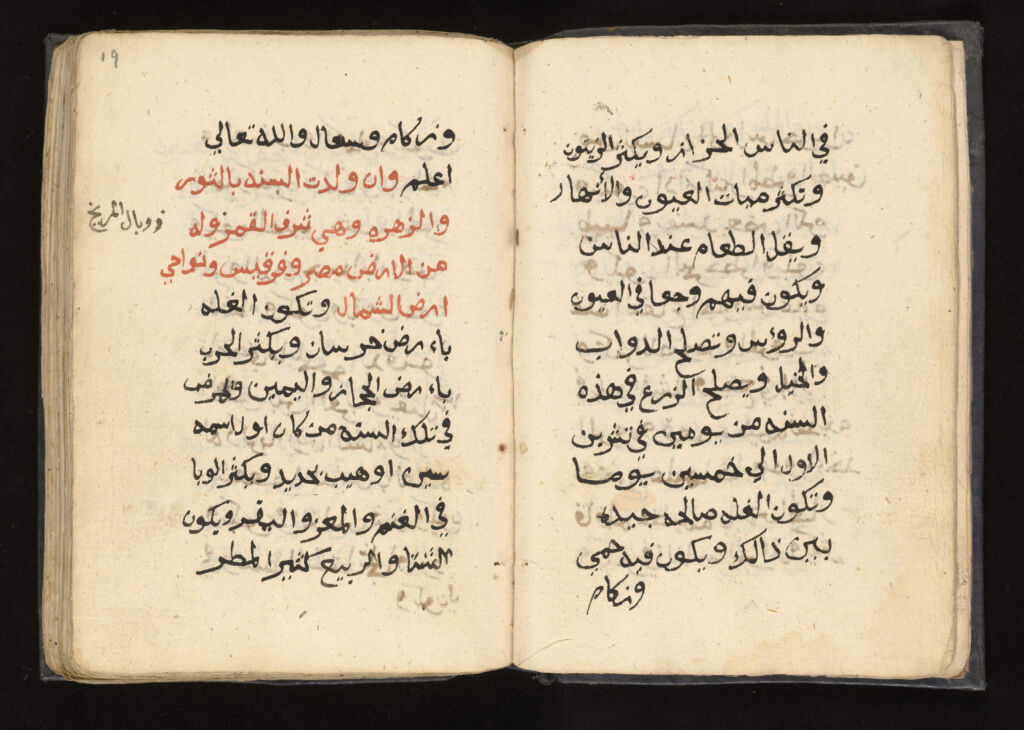 في الناس الحزاز ويكثر الزيتون
وتكثر مياة العيون والأنهار
ويقل الطعام عند الناس
ويكون فيهم وجعا في العيون
والرؤس وتصلح الدواب
والخيل ويصلح الزرع في هذه
السنه من يومين في تشرين
الاول الي خمسين يوما
وتكون الغله صالحه جيده
بين ذالك ويكون فيه حمي
وزكام
١٩
وزكام وسعال والله تعالي
اعلم وان ولدت السنه بالثور
والزهره وهي شرف القمر وله
ووبال المريخ
من الارض مصر وفرقيس ونواحي
ارض الشمال وتكون الغله
باءرض خرسان ويكثر الحرب
باءرض الحجاز واليمين
في تلك السنه من كان اول اسمه
سين او بحديد ويكثر الوبا
في الغنم والمعز والبقر ويكون
الشتا والربيع كثير المطر